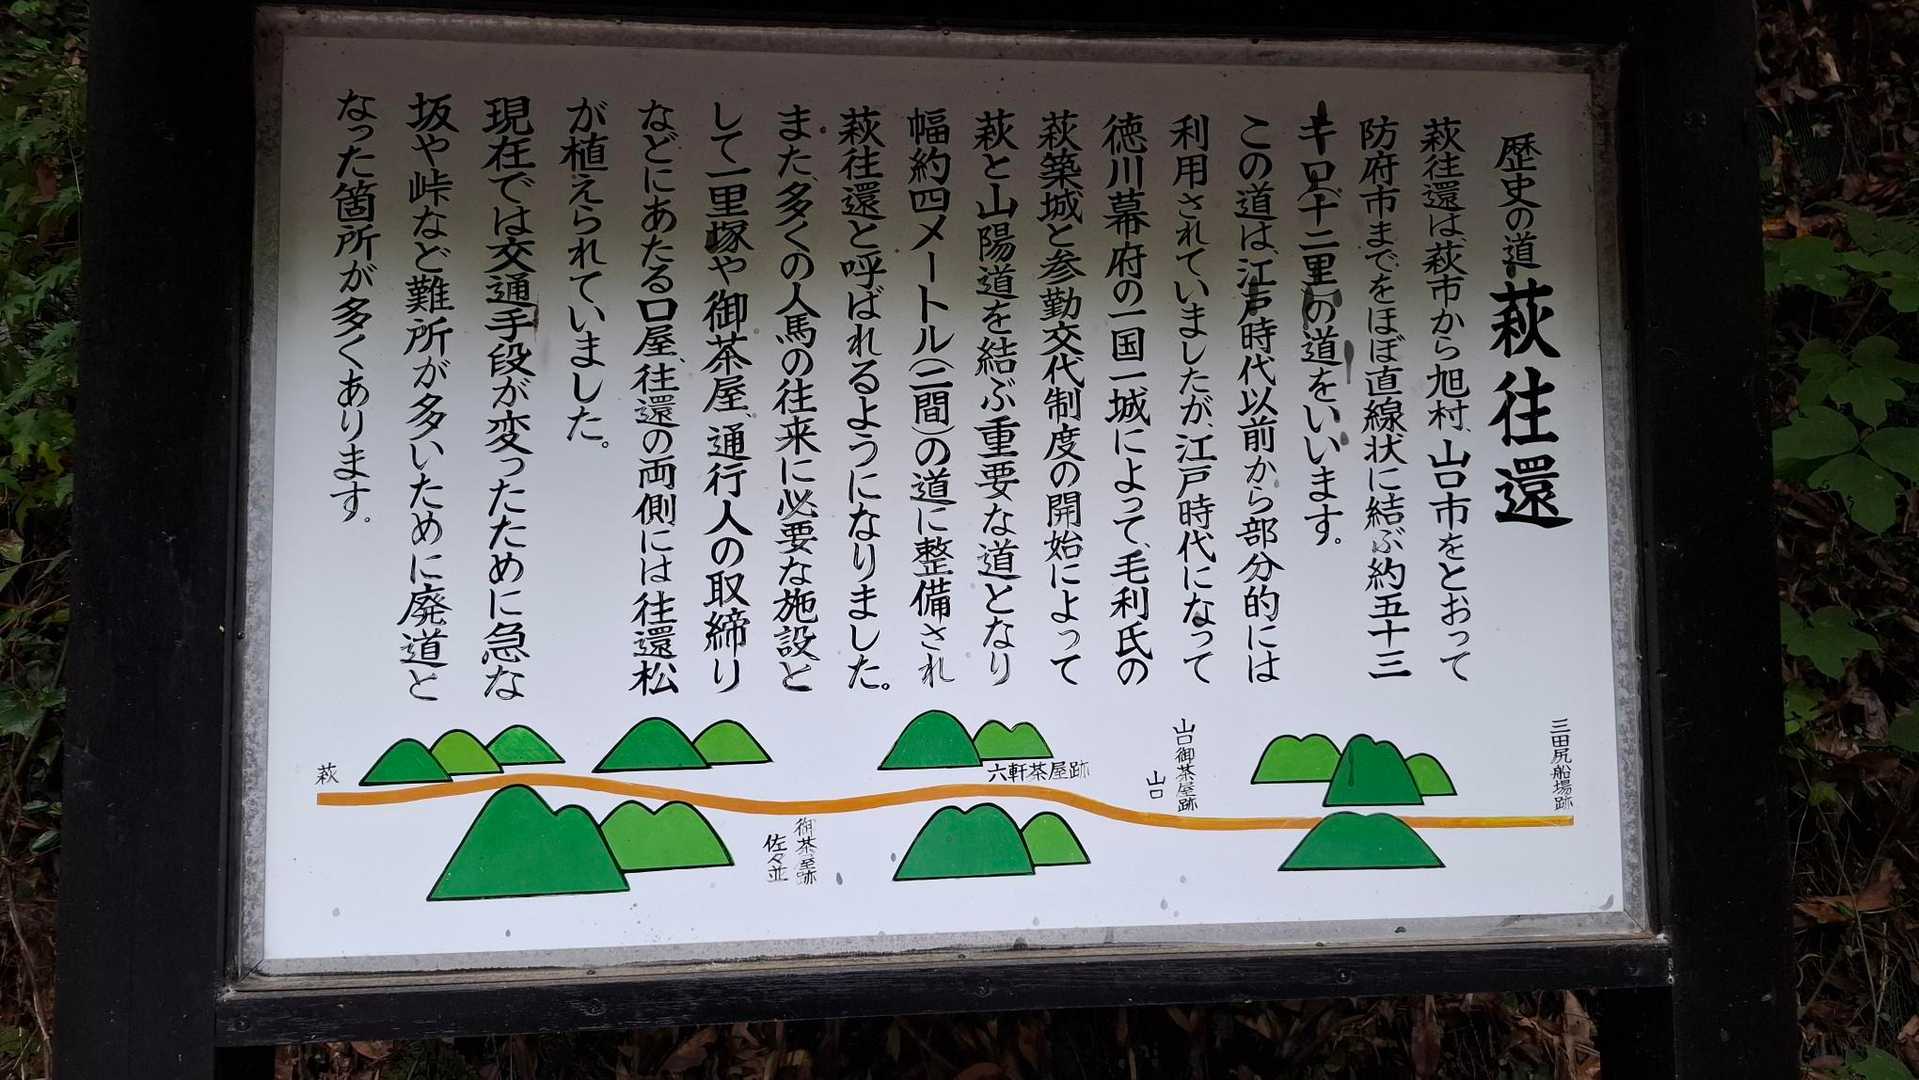 歴史の道 萩往還
萩往還は、萩市から旭村、山口市をとおって
防府市までをほぼ直線状に結ぶ約五十三
キロ(十二里)の道をいいます。
この道は、江戸時代以前から部分的には
利用されていましたが、江戸時代になって
徳川幕府の一国一城によって、毛利氏の
萩築城と参勤交代制度の開始によって
萩と山陽道を結ぶ重要な道となり
幅約四メートル(二間)の道に整備され
萩往還と呼ばれるようになりました。
また、多くの人馬の往来に必要な施設と
して一里塚や御茶屋、通行人の取締り
などにあたる口屋、往還の両側には往還松
が植えられていました。
現在では交通手段が変ったために急な
坂や峠など難所が多いために廃道と
なった箇所が多くあります。
三田尻船場跡
山口御茶屋跡
山口
六軒茶屋跡
御茶屋跡
佐々並
萩